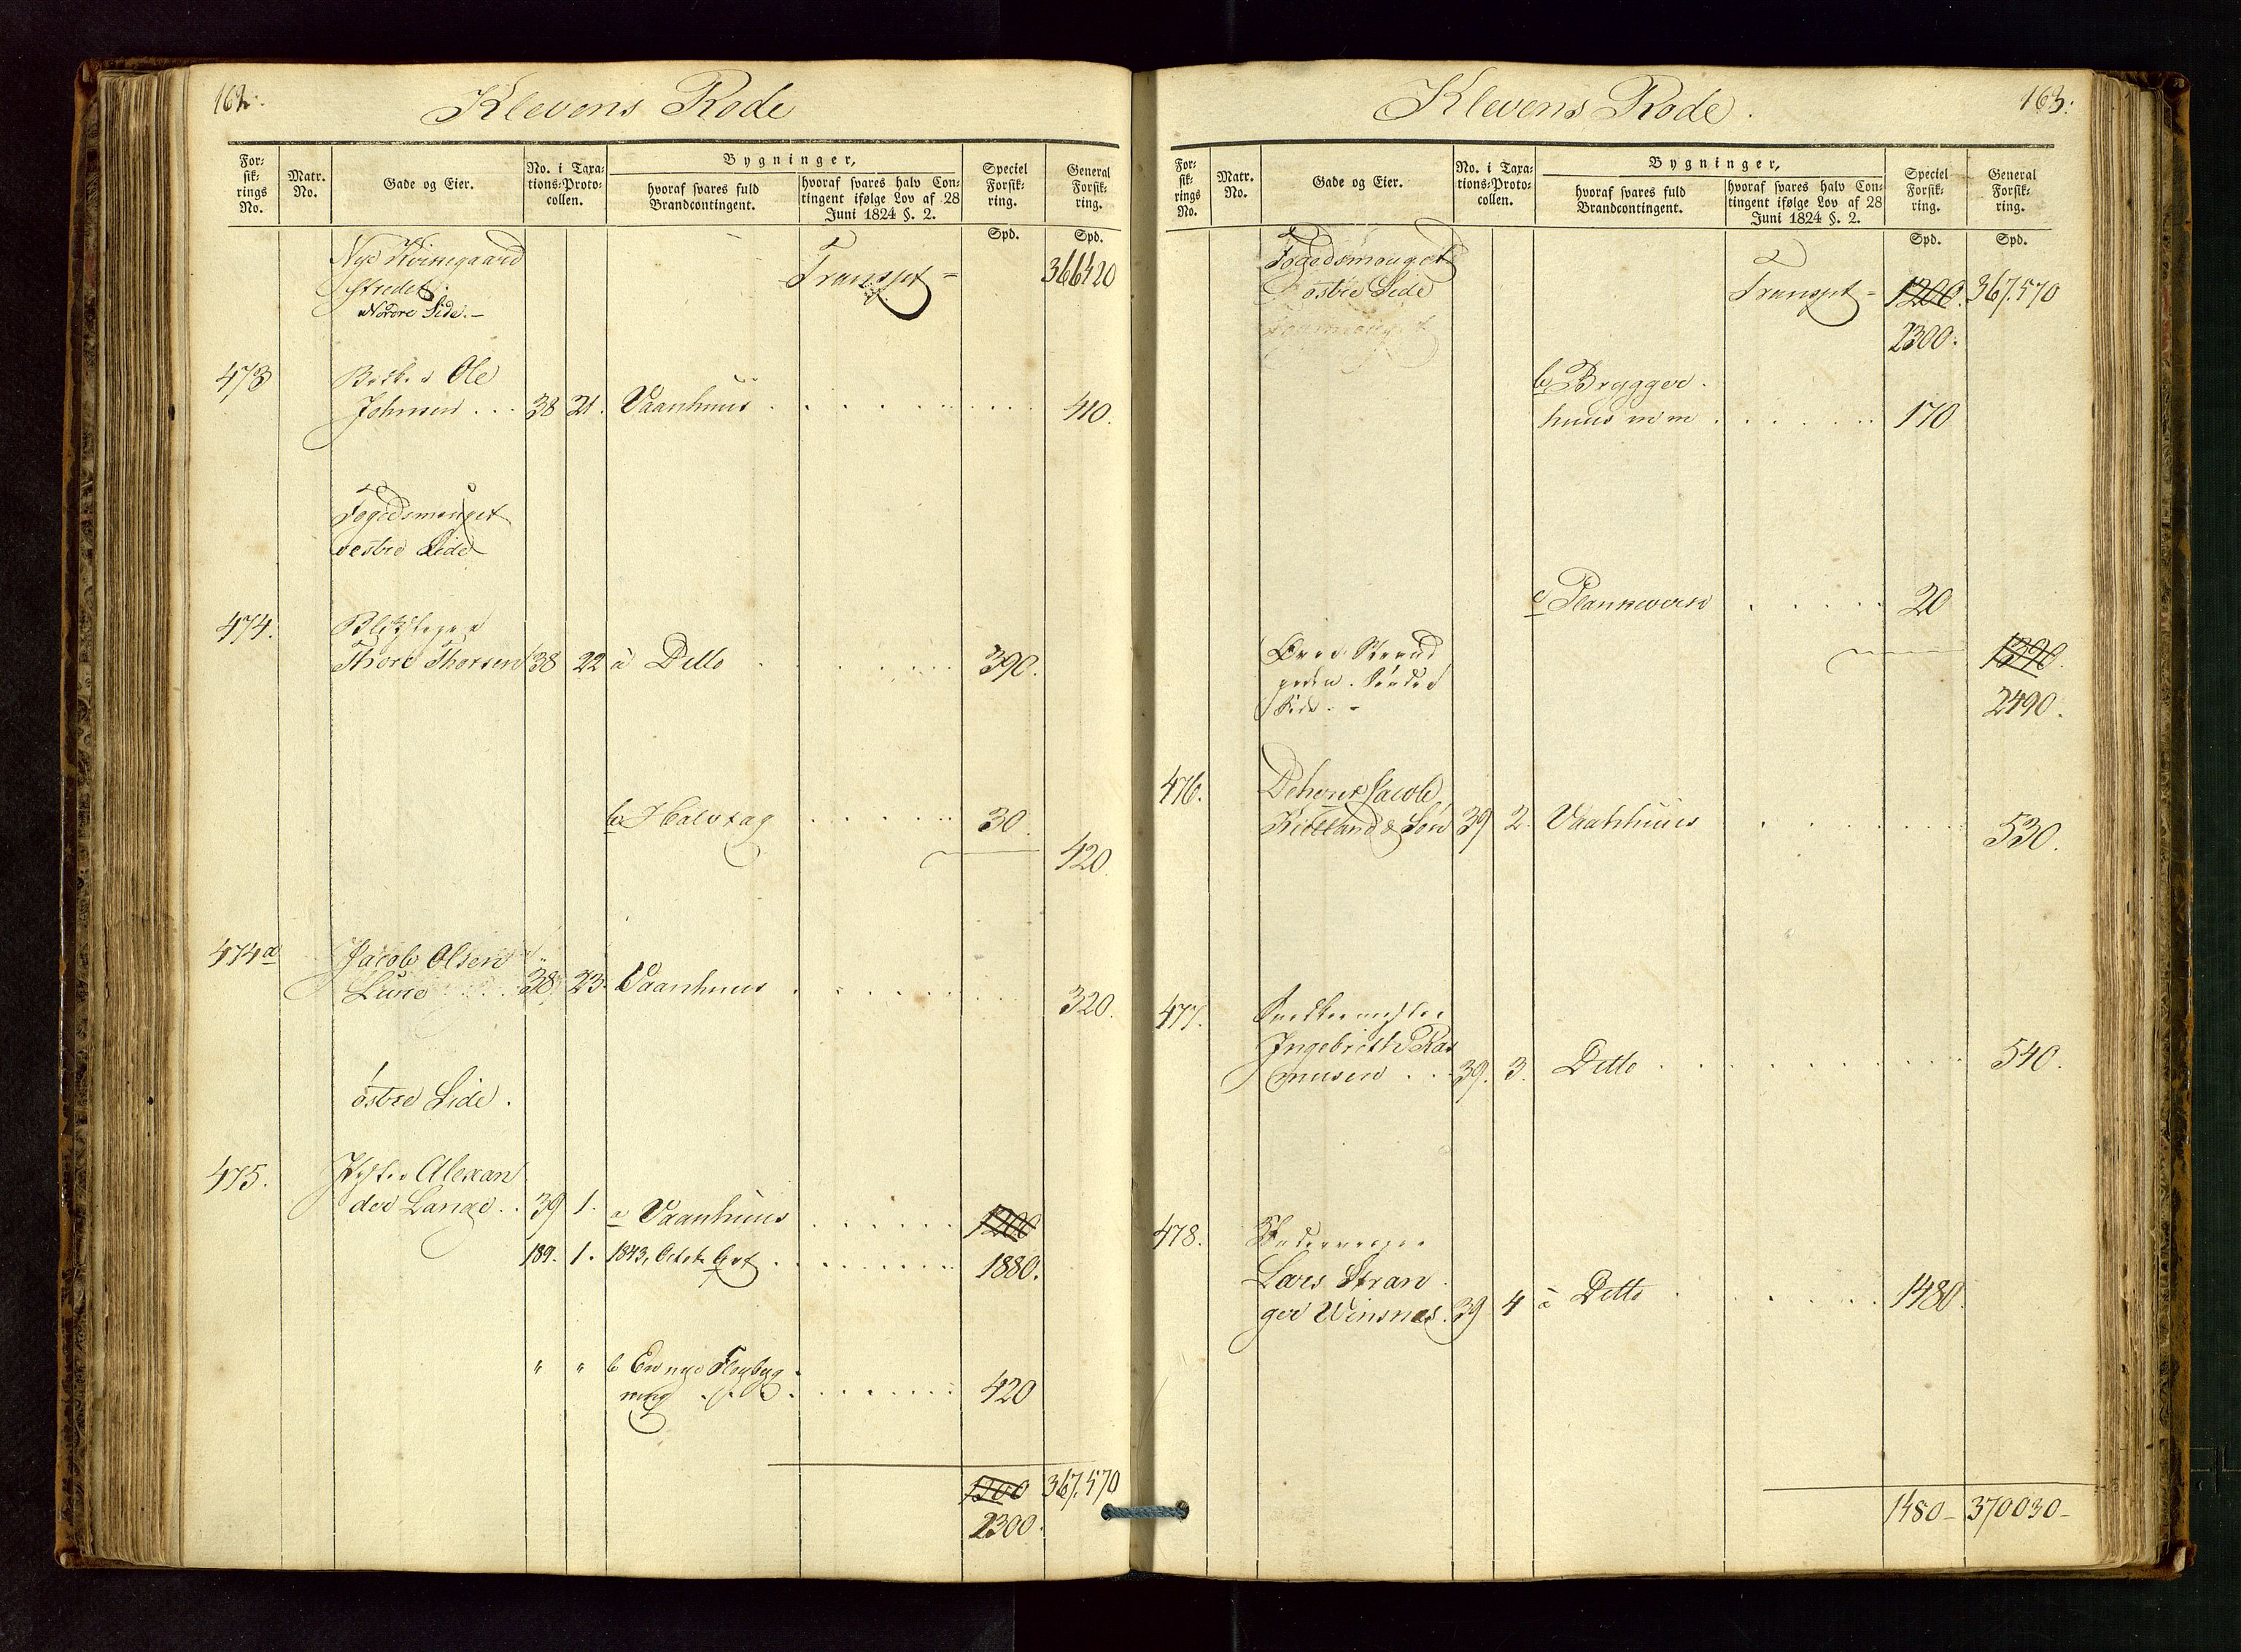 162.
Klevens Rode
For=
sik=
rings
No.
Matr.
No.
Gade og Eier.
No. i Taxa=
tions=Proto=
collen.
Bygninger,
hvoraf svares fuld
Brandcontingent.
hvoraf svares halv Con=
tingent ifølge Lov af 28
Juni 1824 §. 2.
Speciel
Forsik=
ring.
General
Forsik=
ring.
Spd. Spd.
Nye
Strædet
Nordre Side.-
Transpt - 366420
473 Ole
Johnsen ... 38 21. Vaanhuus 410.
Fogedsmouget
vestre Side
474.
Thore Thorsen 38 22 a Ditto 390.
b Halvtag 30.
420.
474a Jacob Olsen
Lund 38 23. Vaanhuus 320.
østre Side.
475. Alexan
der Lange.. 39 1. a Vaanhuus 1200
189. 1. 1843, 1880.
" " b En nye
ning 420
1200 367.570
2300.
163.
Klevens Rode.
For=
sik=
rings
No.
Matr.
No.
Gade og Eier.
No. i Taxa=
tions=Proto=
collen.
Bygninger,
hvoraf svares fuld
Brandcontingent.
hvoraf svares halv Con=
tingent ifølge Lov af 28
Juni 1824 §. 2.
Speciel
Forsik=
ring.
General
Forsik=
ring.
Spd. Spd.
Fogedsmouget
østre Side
Transpt - 1200. 367.570
2300.
b Brygger
huus m m 170
c Plankeverk 20
Øvre Strand
gaden. Søndre
Side. -
1390.
2490.
476. Jacob
Kielland & Søn 39 2. Vaanhuus 530.
477.
Ingebreth Ras
musen ... 39. 3. Ditto 540.
478.
Lars Stran
ger Winsnes. 39 4 a Ditto 1480.
1480- 370030-